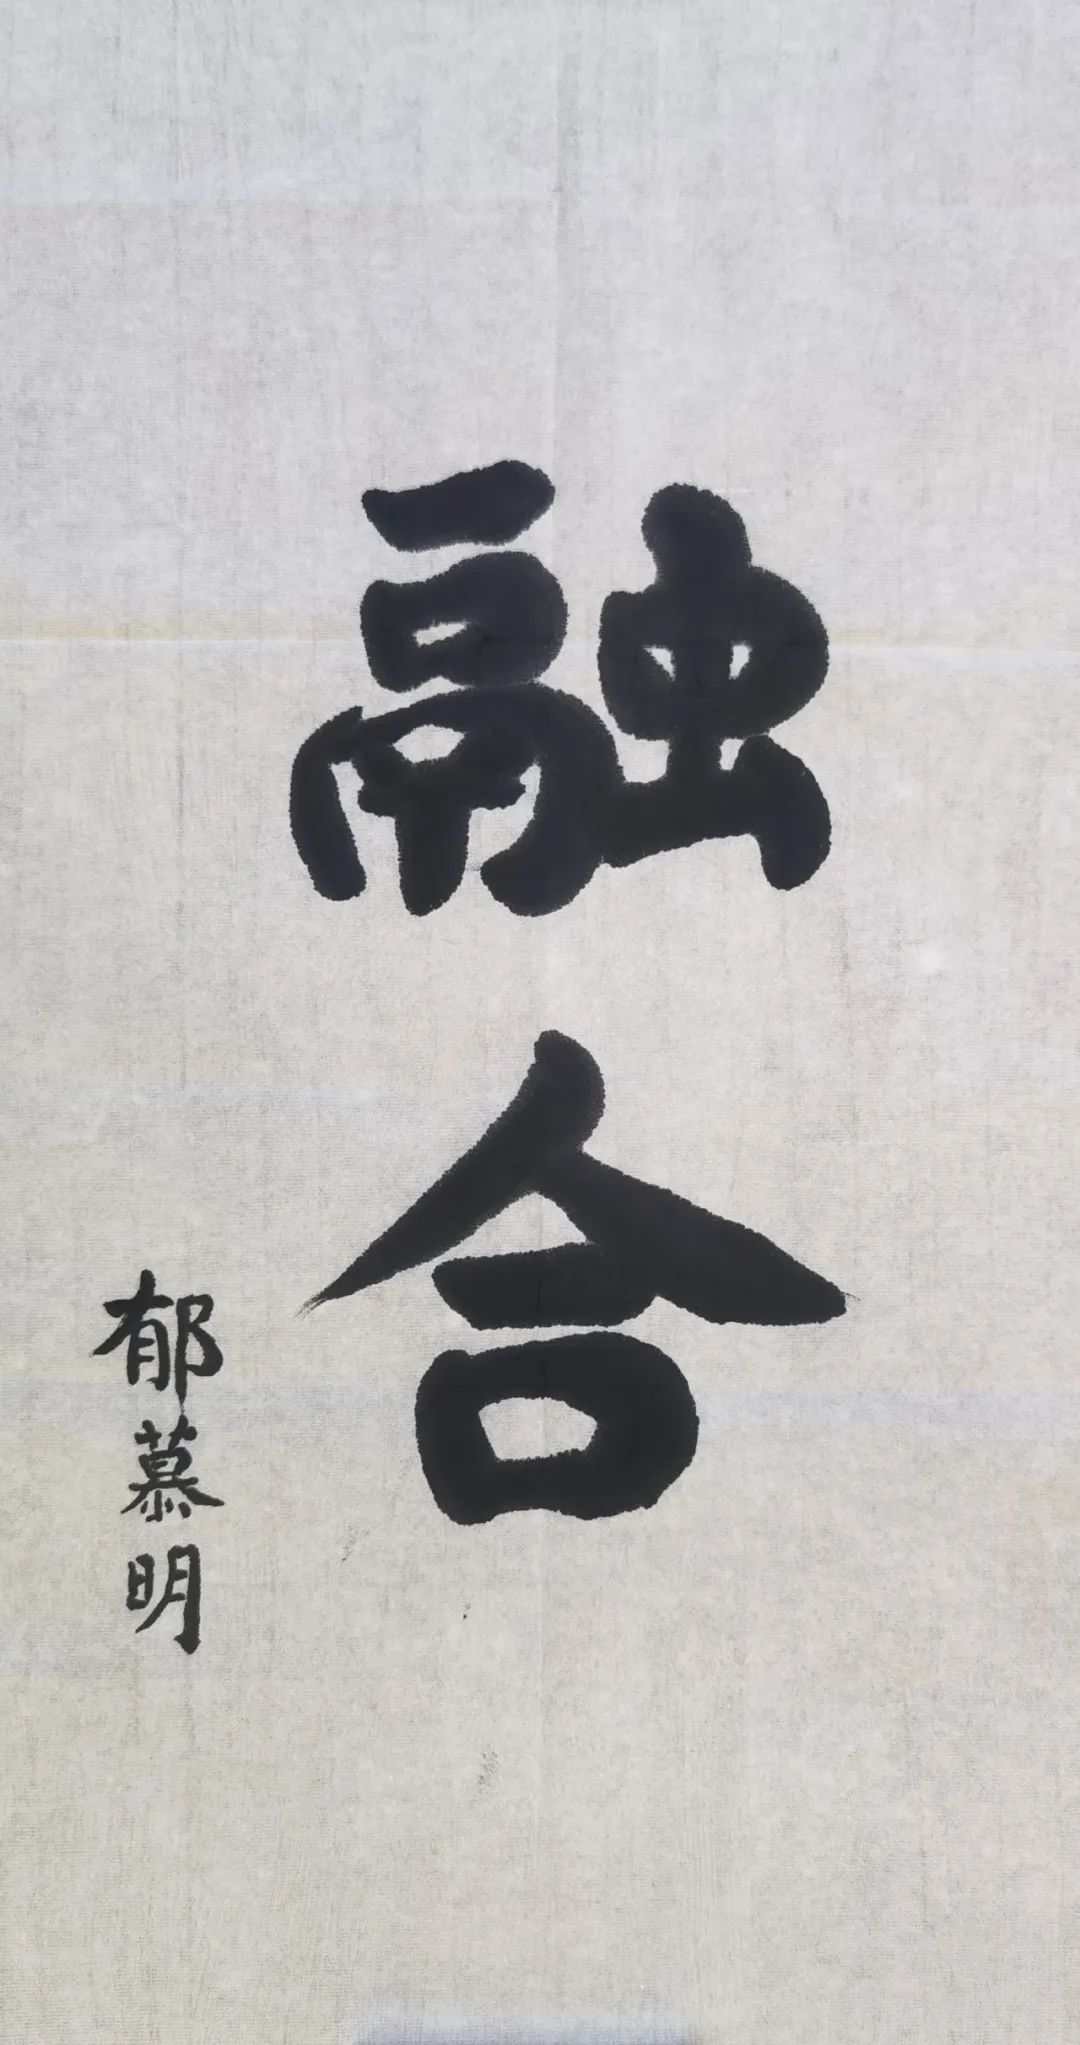 融合
郁慕明